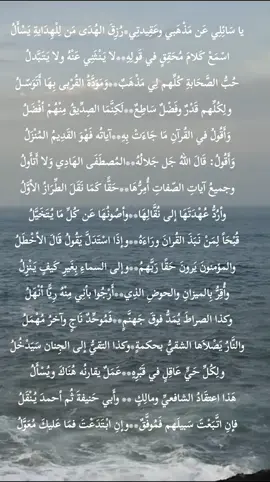 يا سَائِلِي عَن مَذْهَبِي وعَقِيدَتِي*رُزِقَ الهُدَى مَن لِلهِدَايَةِ يَسْأَلُ
اسْمَعْ كَلَامَ مُحَقِقٍ في قَولِهِ**لا يَنْثَنِي عَنْهُ ولا يَتَبَدَّلُ
حُبُّ الصَّحَابَةِ كُلُّهم لِي مَذْهَبٌ**وَمَوَدَّةُ القُرْبَى بِهَا أَتَوَسَّلُ
ولِكُلِّهِم قَدْرٌ وفَضْلٌ سَاطِعٌ**لَكِنَّمَا الصِدِّيقُ مِنْهُمْ أَفْضَلُ
وَأَقُولُ في القُرآنِ مَا جَاءَتْ بِهِ**آياتُه فَهْوَ القَدِيمُ المُنْزَلُ
وَأَقُولُ: قَالَ اللهُ جَل جَلَالُهُ**المُصطَفَى الهَادِي وَلا أَتَأوَلُ
وجميعُ آياتِ الصِّفاتِ أُمِرُّهَا**حَقًّا كمَا نَقَلَ الطِّرَازُ الأَوَّلُ
وأرُدُّ عُهْدَتَهَا إلى نُقَّالِهَا**وأصُونُها عَن كُلِّ مَا يُتَخَيَّلُ
قُبْحًا لِمَنْ نَبَذَ القُرانَ ورَاءَهُ**وإذَا اسْتَدَلَّ يَقُولُ قَالَ الأَخْطَلُ
والمؤمنونَ يَرونَ حقًا رَبَّهُم**وإلى السماءِ بِغَيرِ كَيفٍ يَنْزِلُ
وأُقِرُّ بِالميزانِ والحوضِ الذِي**أَرْجُوا بأنِي مِنْهُ رِيًّا أَنْهَلُ
وكذا الصراطُ يُمَدُّ فوقَ جَهنَّمٍ**فَمُوَحِّدٌ نَاجٍ وآخرُ مُهْمَلُ
والنَّارُ يَصْلَاها الشقيُّ بحكمةٍ*وكذا التقيُّ إلى الجِنانِ سَيَدْخُلُ
ولِكُلِّ حيٍّ عاقلٍ في قَبْرِهِ**عَمَلٌ يقارنُه هُنَاكَ ويُسْأَلُ
هَذا اعتِقَادُ الشافعيِّ ومالكٍ ** وأبي حنيفةَ ثُم أحمدَ يُنْقَلُ
فإن اتَّبَعْتَ سبيلَهم فَمُوفَّقٌ**وإنِ ابْتَدَعْتَ فمَا عَلَيكَ مُعَوَّلُ